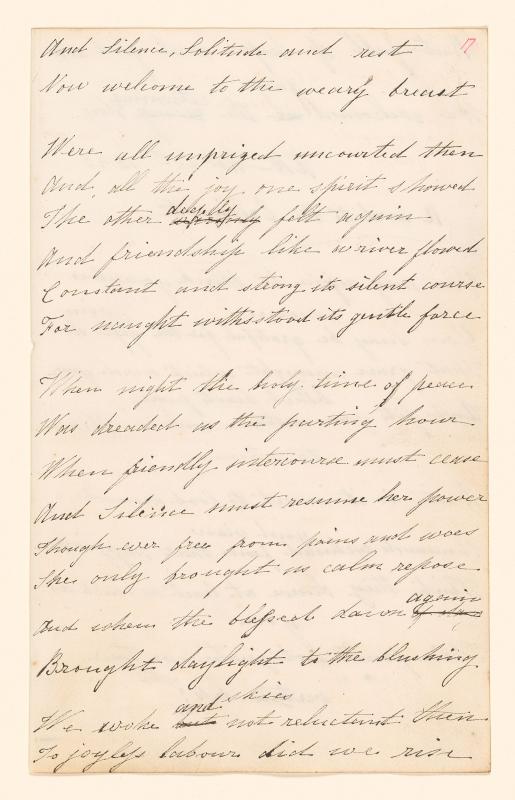 17
And Silence, Solitude and rest
Now welcome to the weary breast
Were all unprized uncourted then
And all the joy one spirit showed
deeply
The other felt again
And friendship like a river flowed
Constant and strong its silent course
For naught withsstood its gentle force
When night the holy time of peace
Was dreaded as the parting hour
When friendly intercourse must cease
And Silence must resume her power
Though ever free from pains and woes
She only brought us calm repose
again
And when the blessed dawn
Brought daylight to the blushing
skies
and
We woke but not reluctant then
To joyless labour did we rise